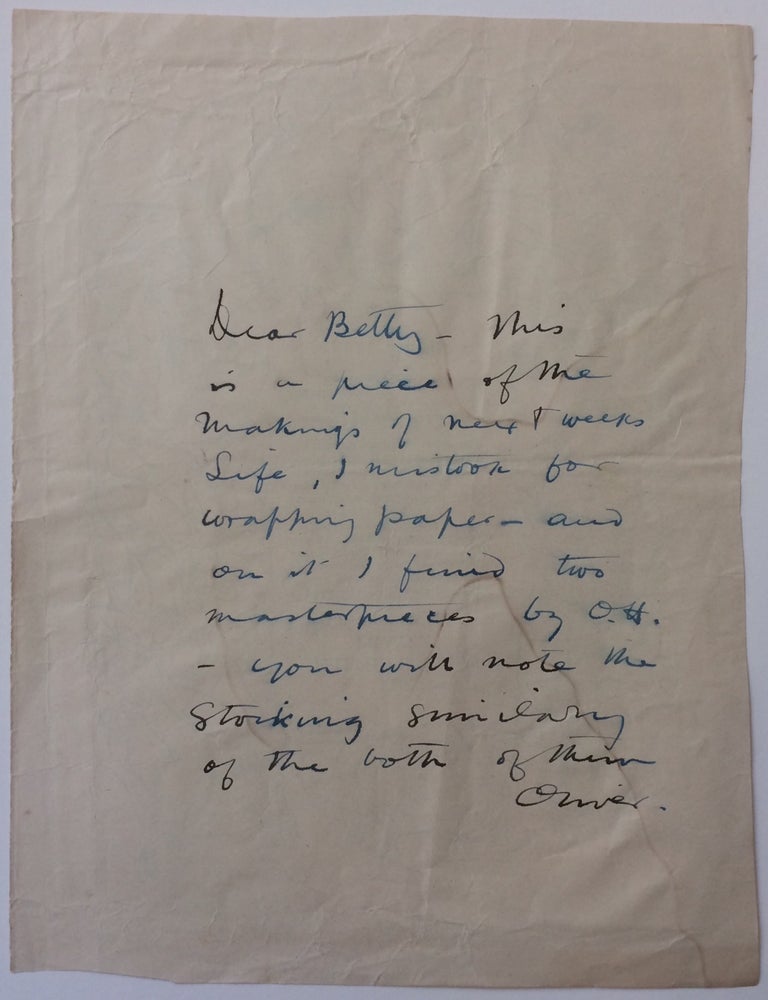 Dear Betty – This
is a piece of the
makings of next weeks
Life, I mistook for
wrapping paper – and
on it I find two
masterpieces by O.H.
– you will note the
Striking similarity
of the both of them
Oliver.